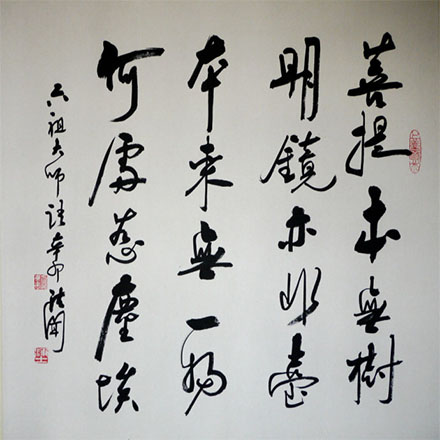 菩提本無樹
明鏡亦非臺
本來無一物
何處惹塵埃
六祖大師 辛卯